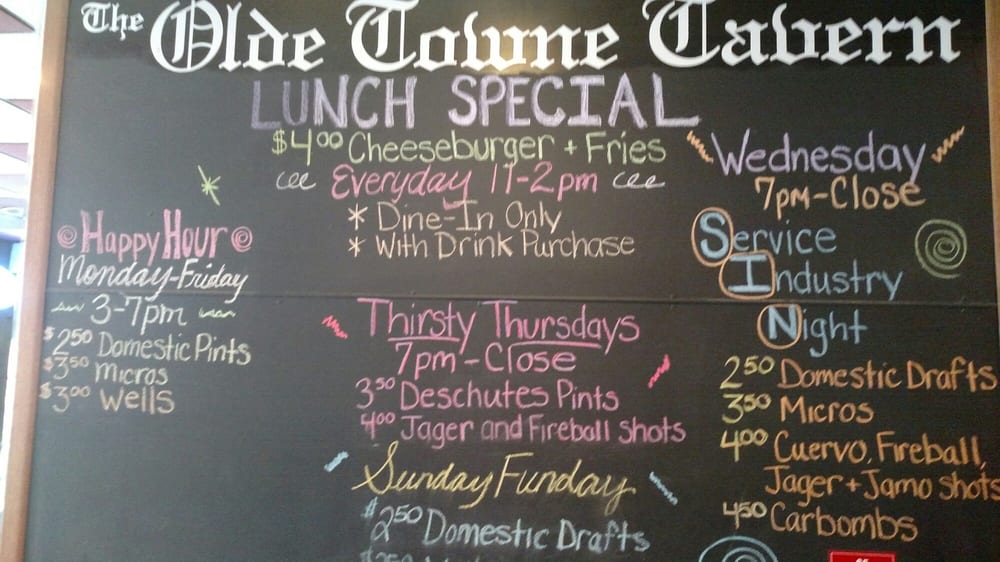 The Olde Towne Tavern
LUNCH SPECIAL
$4.00 Cheeseburger + Fries
Everyday 11-2pm
* Dine-In Only
* With Drink Purchase
Happy Hour
Monday-Friday
3-7pm
$2.50 Domestic Pints
$3.50 Micros
$3.00 Wells
Thirsty Thursdays
7pm-Close
3.50 Deschutes Pints
4.00 Jager and Fireball Shots
Sunday Funday
$2.50 Domestic Drafts
Wednesday
7pm-Close
Service
Industry
Night
2.50 Domestic Drafts
3.50 Micros
4.00 Cuervo, Fireball,
Jager + Jamo Shots
4.50 Carbombs